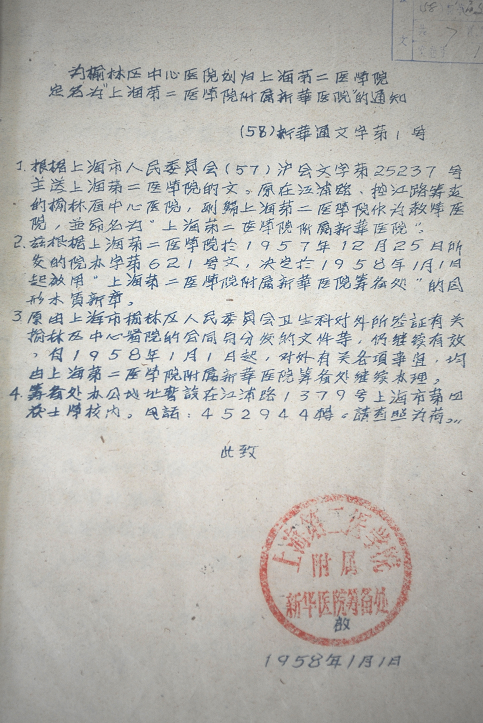 为榆林区中心医院划归上海第二医学院
定名为"上海第二医学院附属新華医院"的通知
(58)新華通文字第1号
1.根据上海市人民委員会(57)沪会文字第25237号
主送上海第二医学院的文。原在江浦路、控江路筹建
的榆林区中心医院,划归上海第二医学院作为教学医
院,並命名为"上海第二医学院附属新華医院"。
2.兹根据上海第二医学院於1957年12月25日所
发的院办字第621号文,决定於1958年1月1日
起启用"上海第二医学院附属新華医院筹备处"的图
形木質新章。
3.原由上海市榆林区人民委員会卫生科对外所签証有关
榆林区中心医院的合同与分發的文件等,仍继续有效
,自1958年1月1日起,对外有关各項事宜,均
由上海第二医学院附属新華医院筹备处继续办理。
4.筹备处办公地址暫設在江浦路1379号上海市第四
護士学校内。电話:452944轉。請查照为荷。
此致
上海第二医学院
附属
新华医院筹备处
啟
1958年1月1日